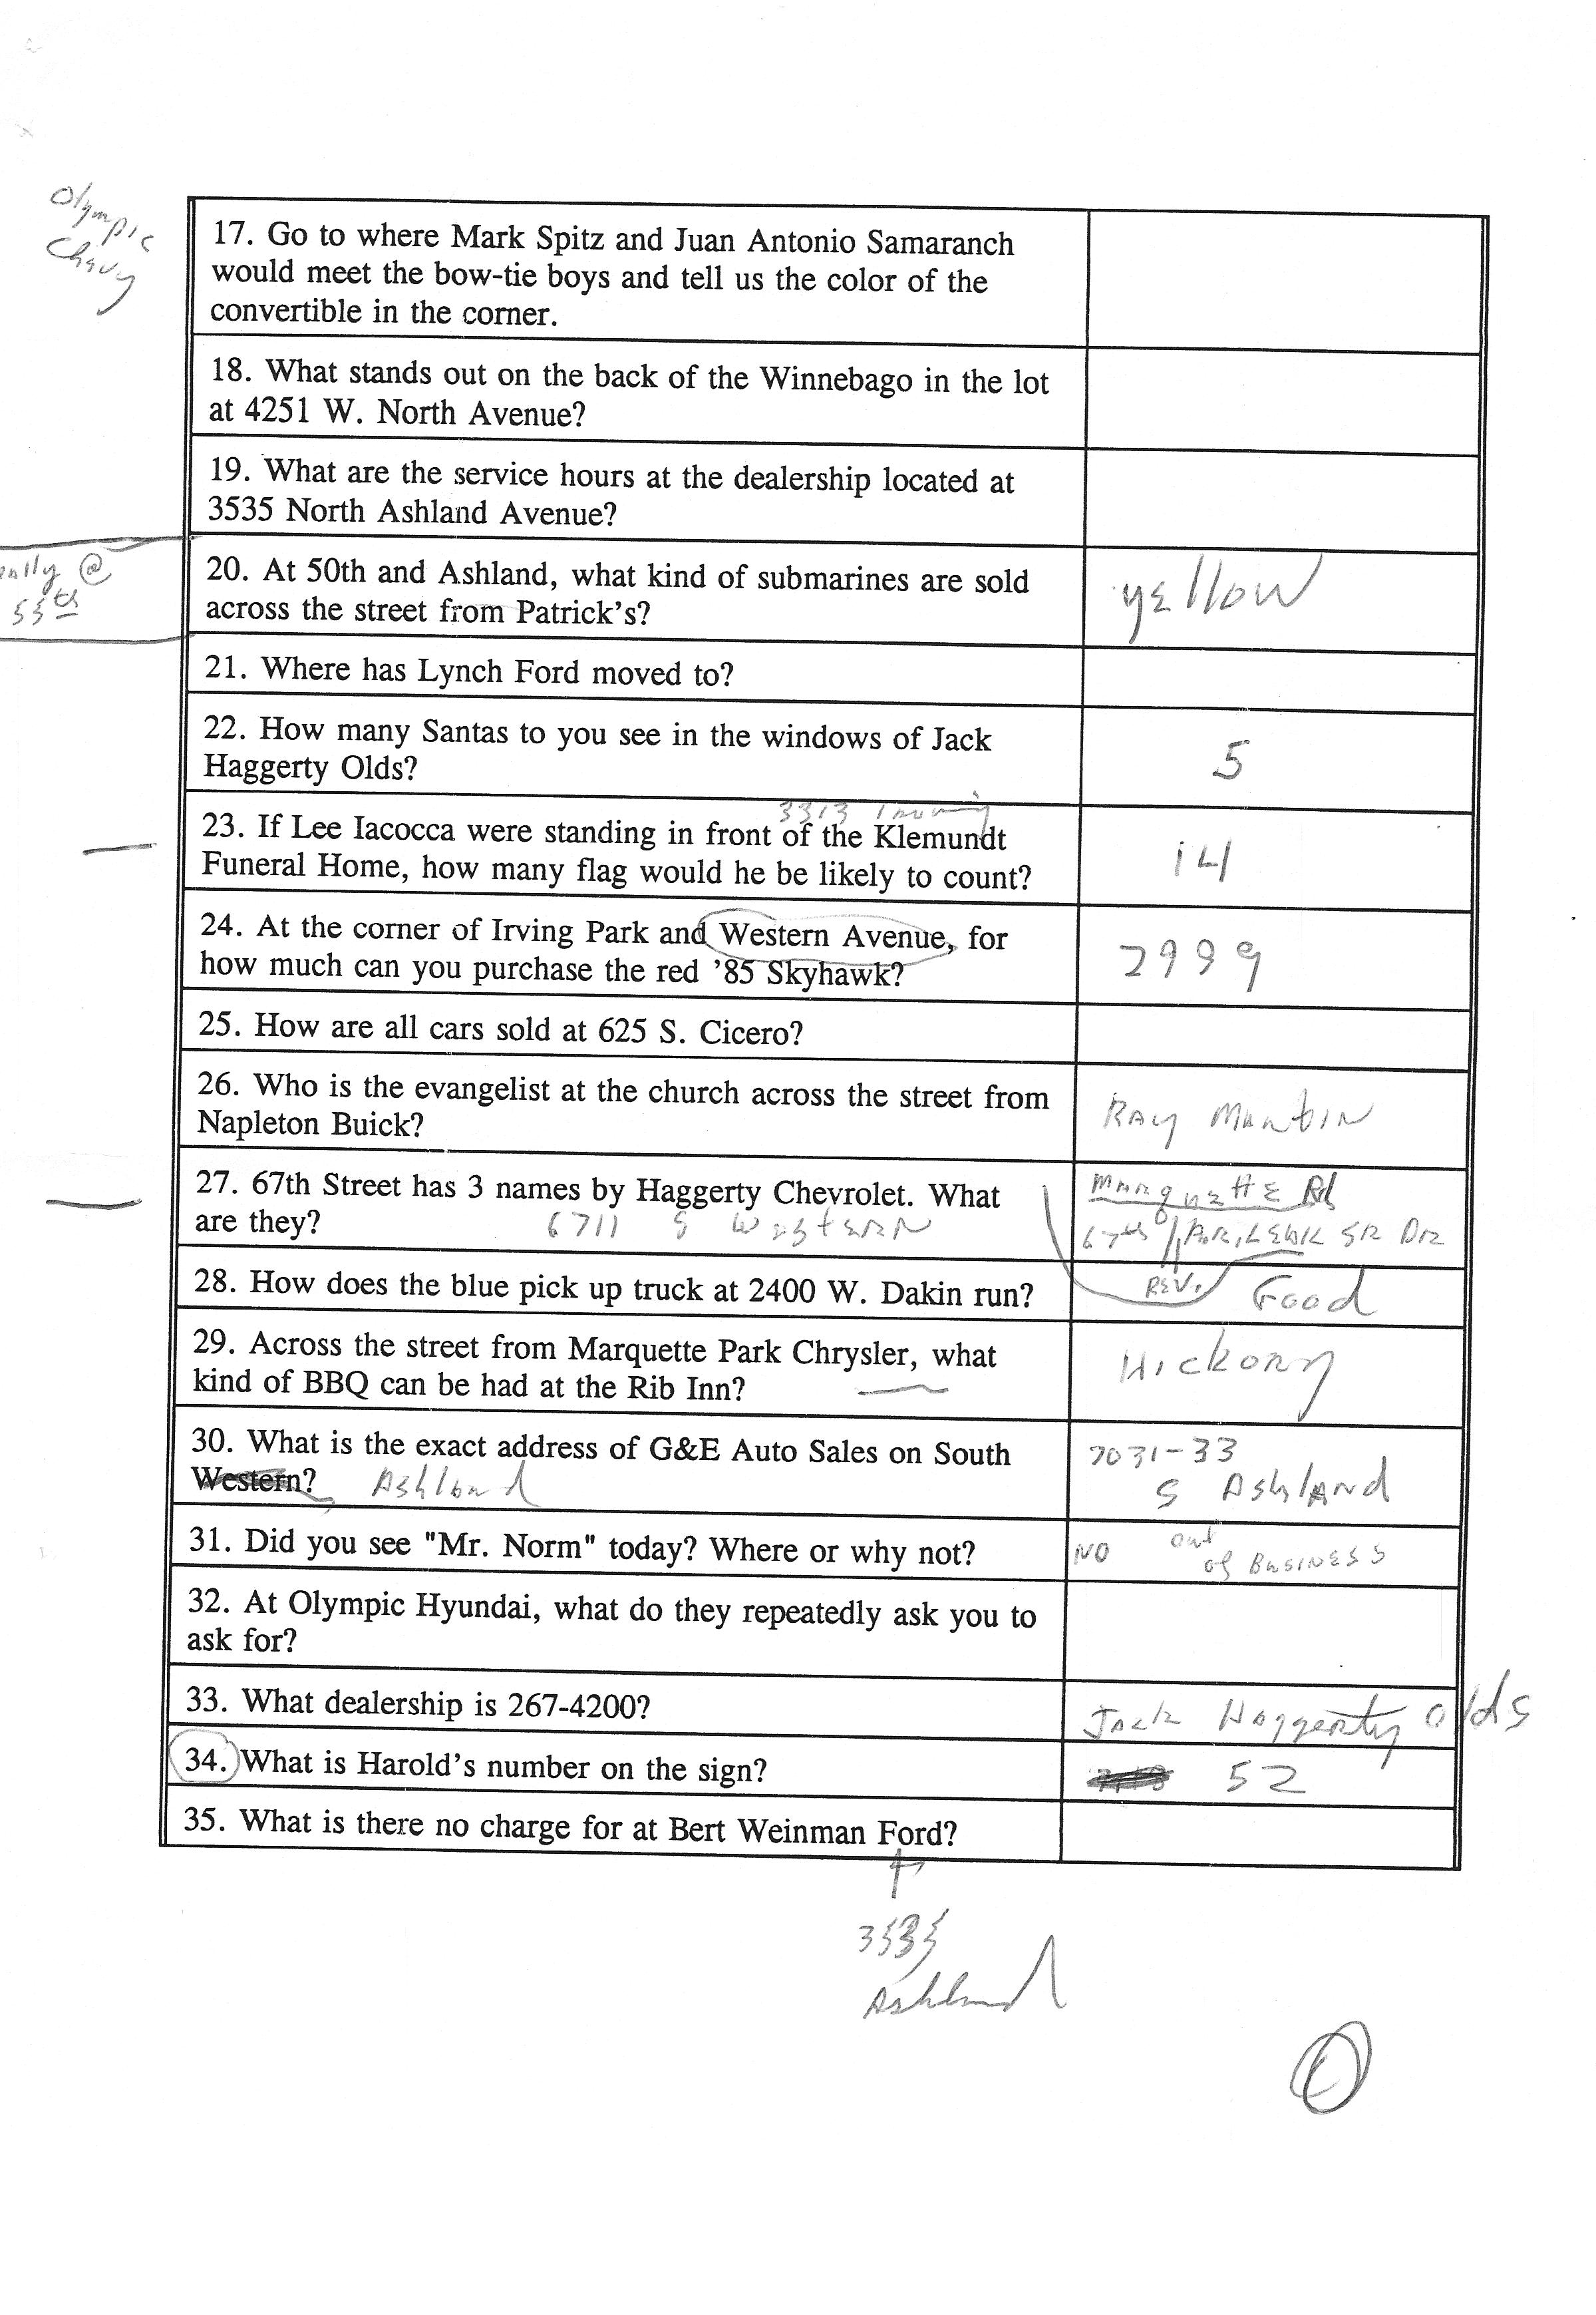 Olympic
Chevy
17. Go to where Mark Spitz and Juan Antonio Samaranch
would meet the bow-tie boys and tell us the color of the
convertible in the corner.
18. What stands out on the back of the Winnebago in the lot
at 4251 W. North Avenue?
19. What are the service hours at the dealership located at
3535 North Ashland Avenue?
@
55th
20. At 50th and Ashland, what kind of submarines are sold
across the street from Patrick's?
yellow
21. Where has Lynch Ford moved to?
22. How many Santas to you see in the windows of Jack
Haggerty Olds?
5
3313 Irving
23. If Lee Iacocca were standing in front of the Klemundt
Funeral Home, how many flag would he be likely to count?
14
24. At the corner of Irving Park and Western Avenue, for
how much can you purchase the red '85 Skyhawk?
2999
25. How are all cars sold at 625 S. Cicero?
26. Who is the evangelist at the church across the street from
Napleton Buick?
Ray
27. 67th Street has 3 names by Haggerty Chevrolet. What
are they?
6711 S Western
Marquette Rd
67th SR DR
Rev.
28. How does the blue pick up truck at 2400 W. Dakin run?
Good
29. Across the street from Marquette Park Chrysler, what
kind of BBQ can be had at the Rib Inn?
Hickory
30. What is the exact address of G&E Auto Sales on South
Western? Ashland
7031-33
S Ashland
31. Did you see "Mr. Norm" today? Where or why not?
NO out
of Business
32. At Olympic Hyundai, what do they repeatedly ask you to
ask for?
33. What dealership is 267-4200?
Jack Haggerty Olds
34. What is Harold's number on the sign?
52
35. What is there no charge for at Bert Weinman Ford?
3535
Ashland